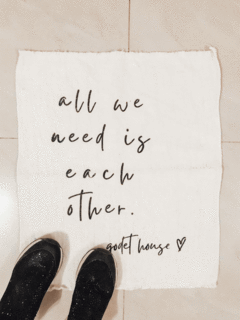 all we
need is
each
other.
godet house ♡